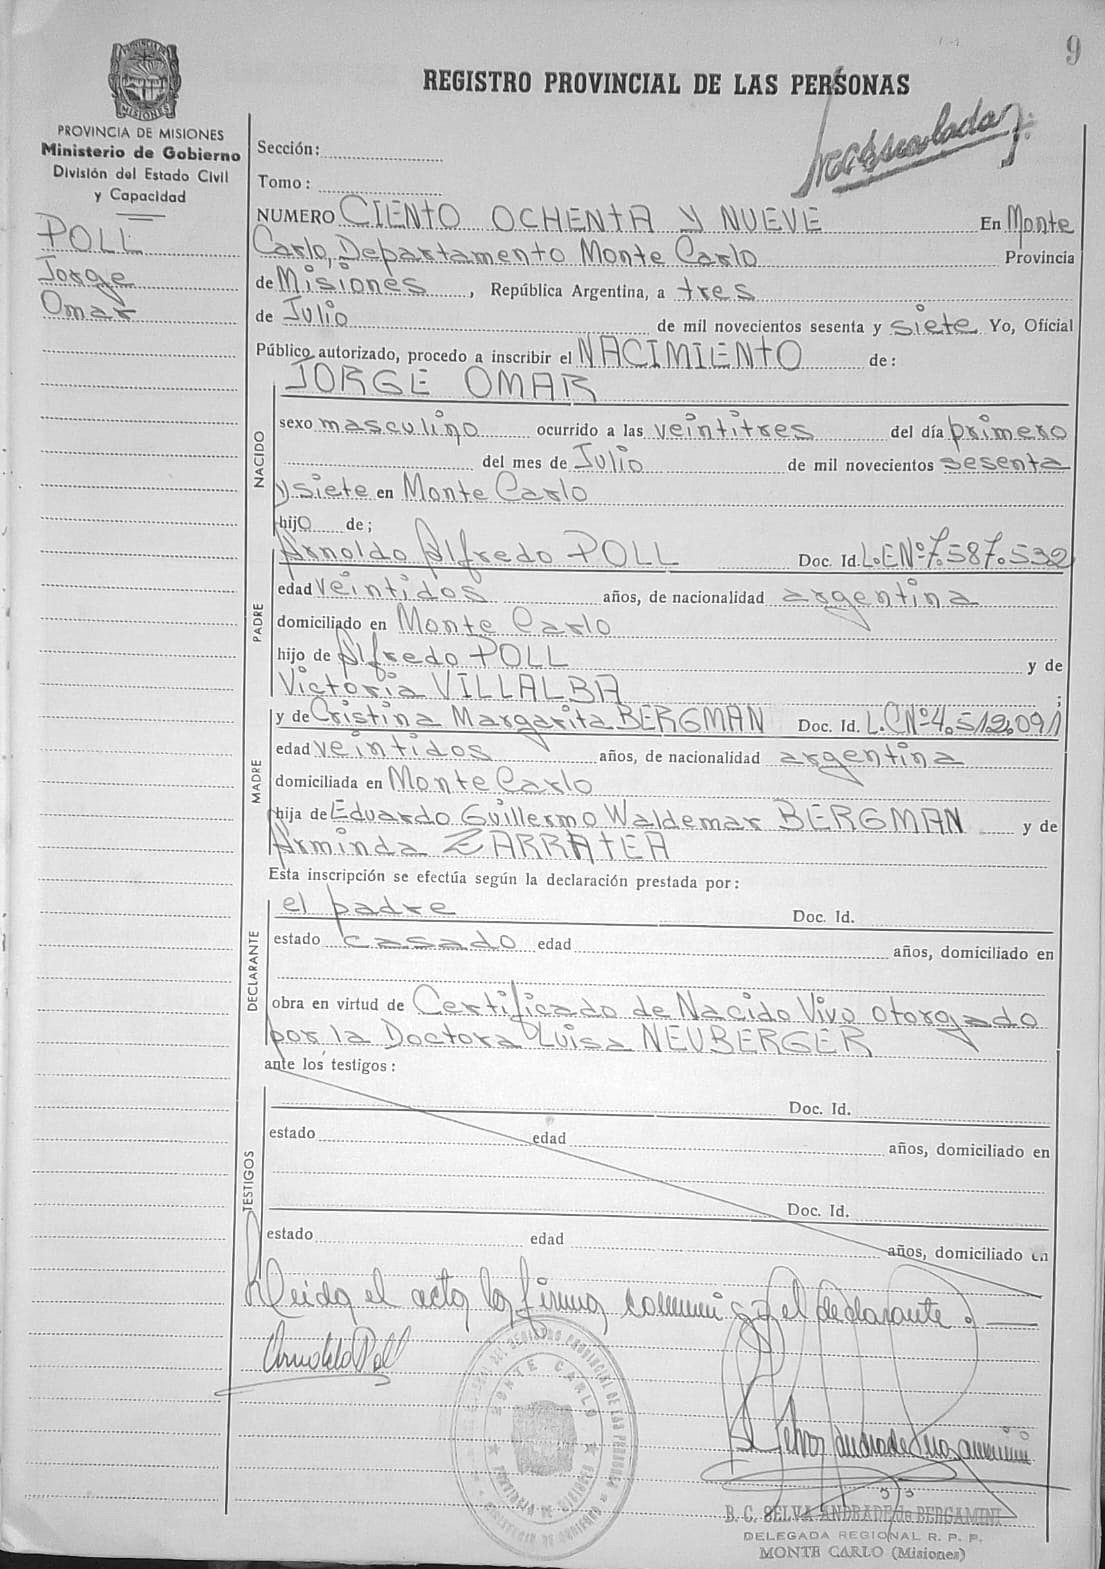 9
REGISTRO PROVINCIAL DE LAS PERSONAS
PROVINCIA DE MISIONES
Ministerio de Gobierno
División del Estado Civil
y Capacidad
POLL
Jorge
Omar
Sección:
Tomo:
NUMERO CIENTO OCHENTA Y NUEVE En Monte
Carlo, Departamento Monte Carlo Provincia
de Misiones, República Argentina, a tres
de Julio de mil novecientos sesenta y siete Yo, Oficial
Público autorizado, procedo a inscribir el NACIMIENTO de:
JORGE OMAR
NACIDO
sexo masculino ocurrido a las veintitres del día primero
del mes de Julio de mil novecientos sesenta
y siete en Monte Carlo
hijo de;
PADRE
Arnoldo Alfredo POLL Doc. Id. L.E Nº 7.587.532
edad veintidos años, de nacionalidad argentina
domiciliado en Monte Carlo
hijo de Alfredo POLL y de
Victoria VILLALBA ;
MADRE
y de Cristina Margarita BERGMAN Doc. Id. L.C Nº 4.512.091
edad veintidos años, de nacionalidad argentina
domiciliada en Monte Carlo
hija de Eduardo Guillermo Waldemar BERGMAN y de
Arminda ZARRATEA
Esta inscripción se efectúa según la declaración prestada por:
DECLARANTE
el padre Doc. Id.
estado casado edad años, domiciliado en
obra en virtud de Certificado de Nacido Vivo otorgado
por la Doctora Luisa NEUBERGER
ante los testigos:
TESTIGOS
Doc. Id.
estado edad años, domiciliado en
Doc. Id.
estado edad años, domiciliado en
Leida el acta la firma conmigo el declarante.
Arnoldo Poll
MONTE CARLO
B. C. SELVA ANDRADE de BERGAMINI
DELEGADA REGIONAL R. P. P.
MONTE CARLO (Misiones)